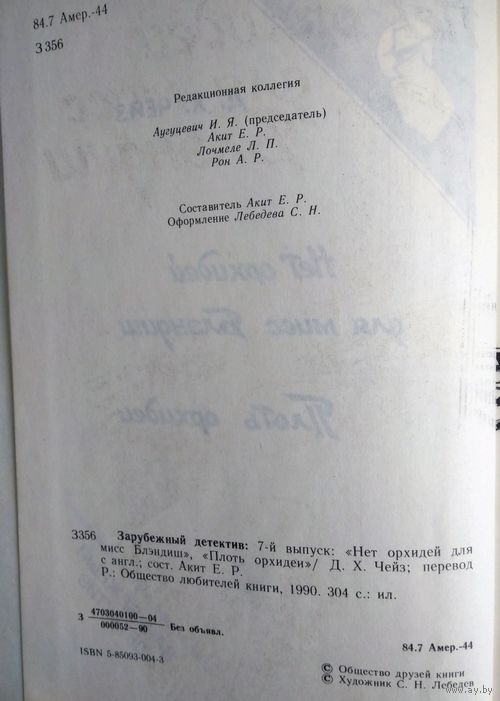 84.7 Амер.-44
З 356
Редакционная коллегия
Аугуцевич И. Я. (председатель)
Акит Е. Р.
Лочмеле Л. П.
Рон А. Р.
Составитель Акит Е. Р.
Оформление Лебедева С. Н.
Нет орхидей
для мисс Блэндиш
Плоть орхидеи
З356 Зарубежный детектив: 7-й выпуск: «Нет орхидей для
мисс Блэндиш», «Плоть орхидеи»/ Д. Х. Чейз; перевод
с англ.; сост. Акит Е. Р.
Р.: Общество любителей книги, 1990. 304 с.: ил.
З 4703040100—04
000052—90 Без объявл.
84.7 Амер.-44
ISBN 5-85093-004-3
© Общество друзей книги
© Художник С. Н. Лебедев
www.ay.by